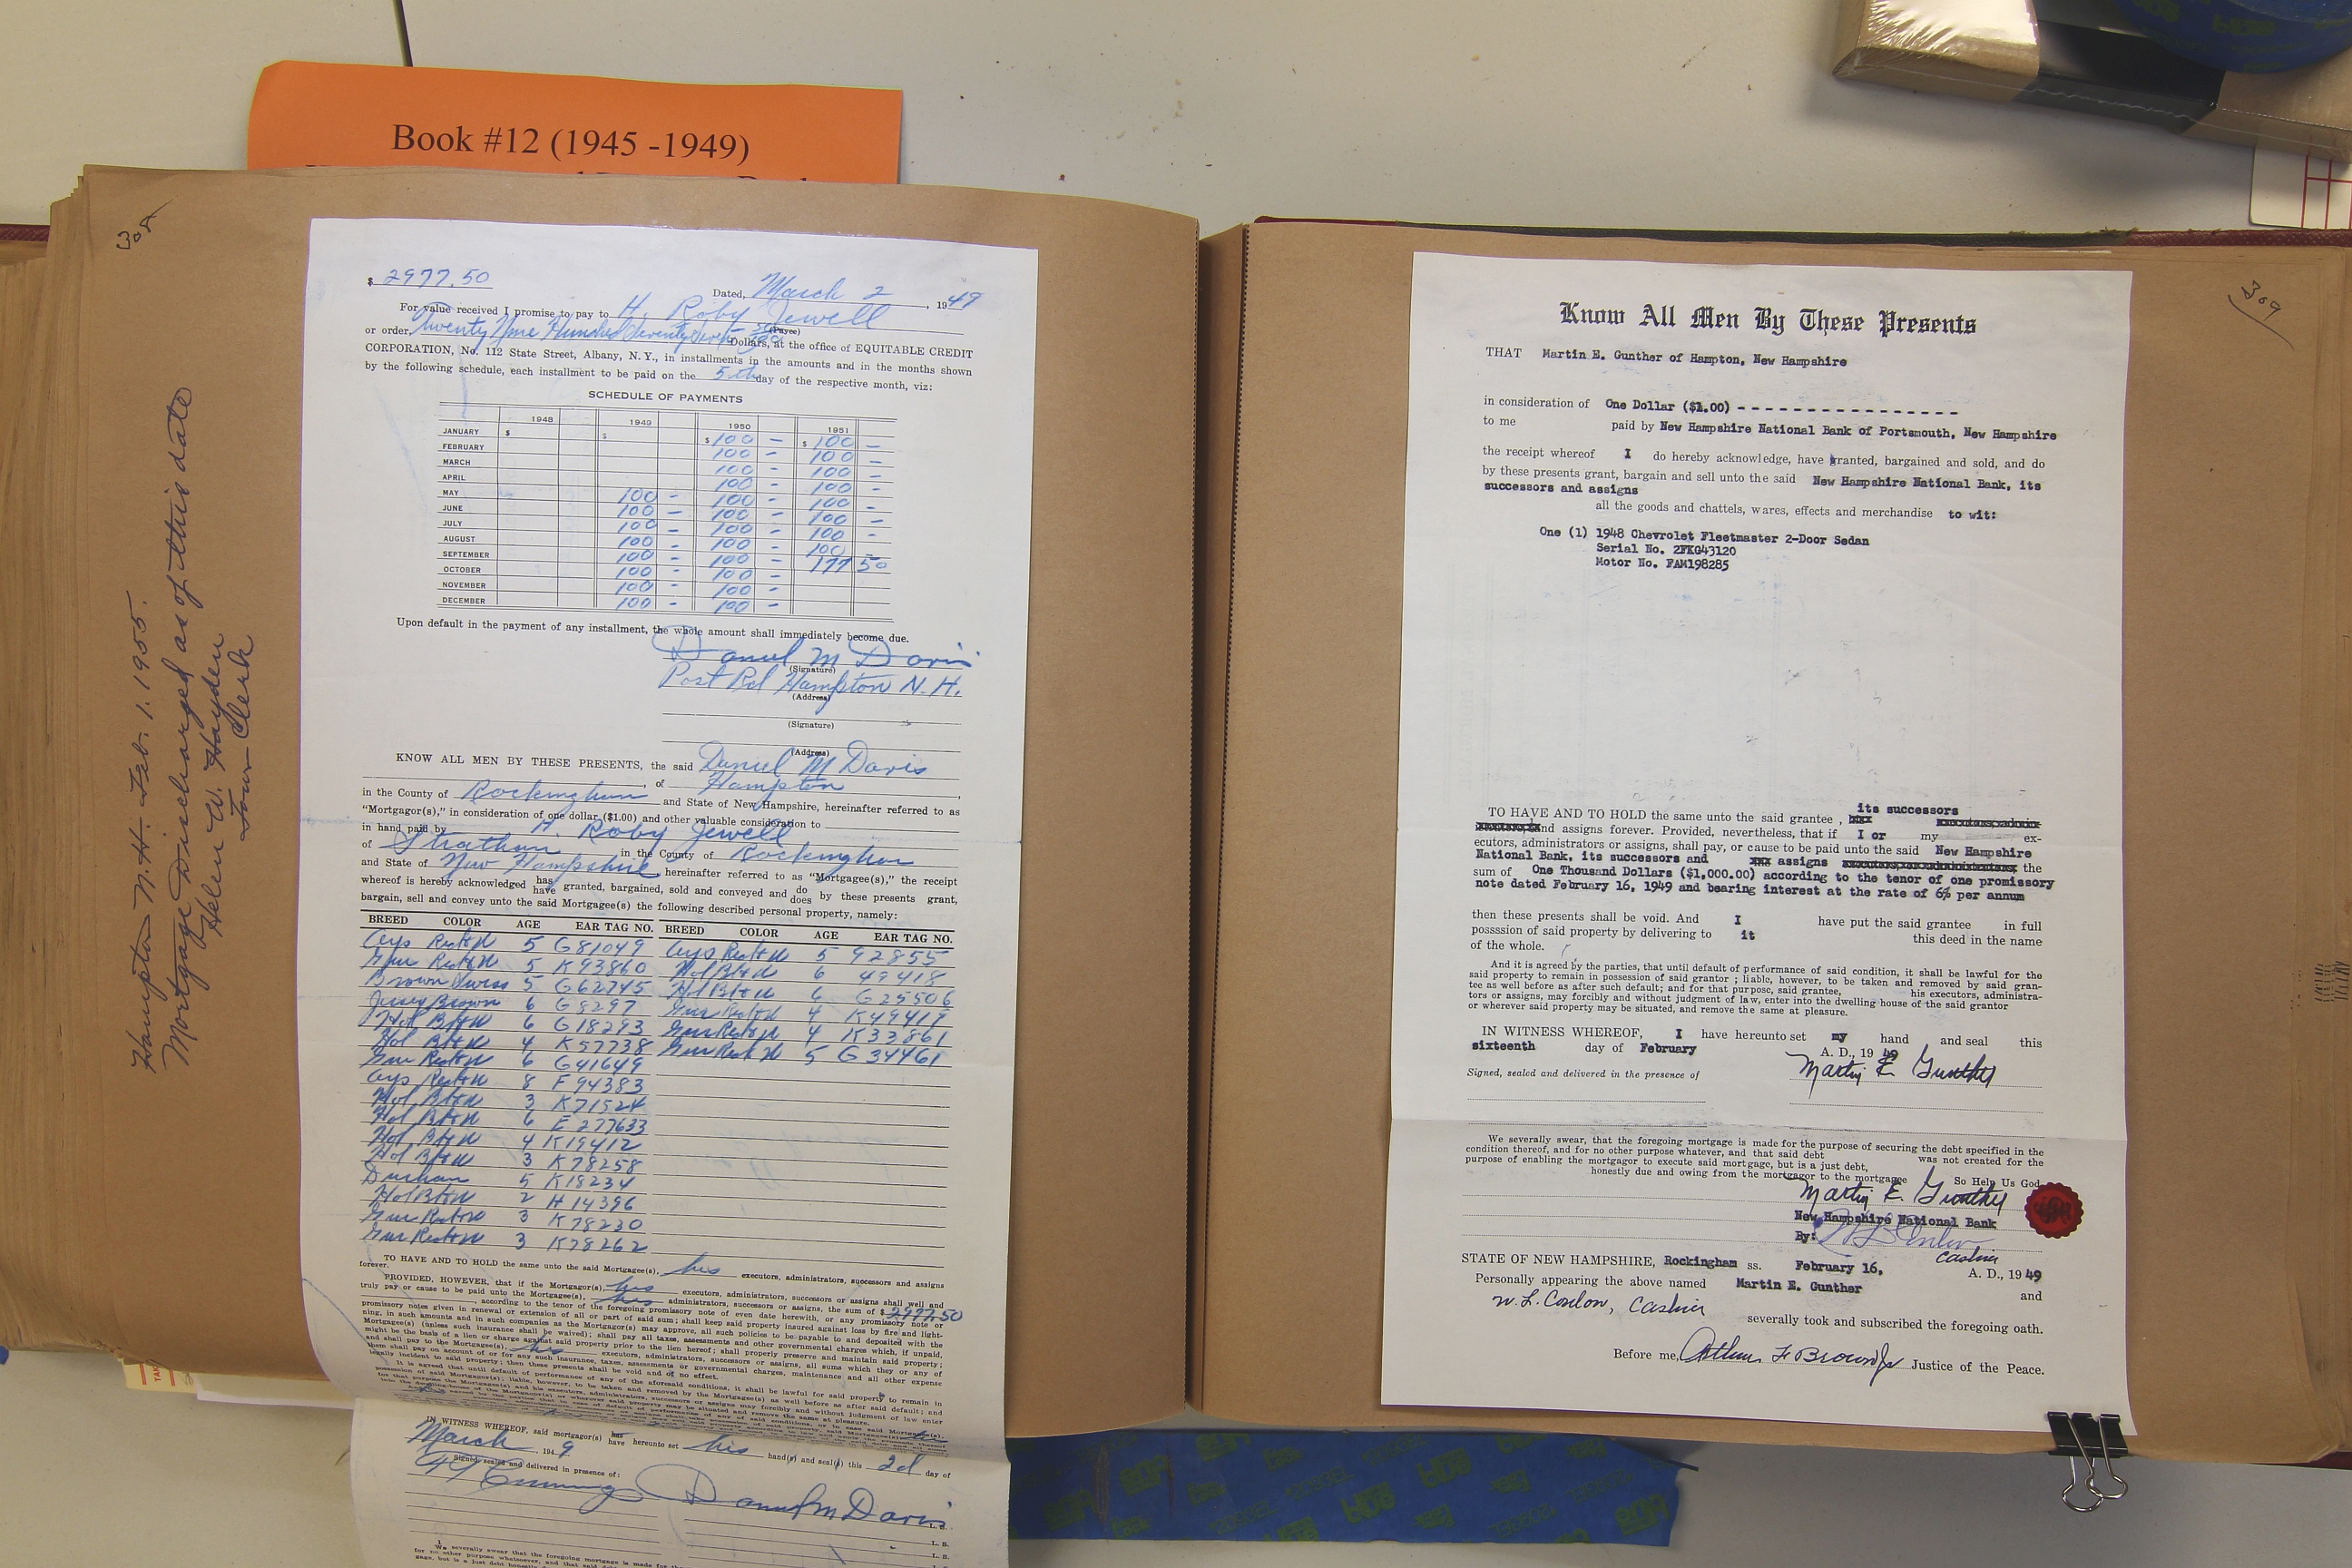 Book #12 (1945 -1949)
308
Hampton N.H. Feb. 1. 1955.
Mortgage Discharged as of this date
Helen W. Hayden
Town Clerk
$ 2977.50
Dated, March 2, 1949
For value received I promise to pay to H. Roby Jewell
(Payee)
or order, Twenty Nine Hundred Seventy Dollars, at the office of EQUITABLE CREDIT
CORPORATION, No. 112 State Street, Albany, N.Y., in installments in the amounts and in the months shown
by the following schedule, each installment to be paid on the 5th day of the respective month, viz:
SCHEDULE OF PAYMENTS
1948 1949 1950 1951
JANUARY $ $ $ 100 - $ 100 -
FEBRUARY 100 - 100 -
MARCH 100 - 100 -
APRIL 100 - 100 -
MAY 100 - 100 - 100 -
JUNE 100 - 100 - 100 -
JULY 100 - 100 - 100 -
AUGUST 100 - 100 - 100
SEPTEMBER 100 - 100 - 177 50
OCTOBER 100 - 100 -
NOVEMBER 100 - 100 -
DECEMBER 100 - 100 -
Upon default in the payment of any installment, the whole amount shall immediately become due.
Daniel M Davis
(Signature)
Post Rd Hampton N.H.
(Address)
(Signature)
(Address)
KNOW ALL MEN BY THESE PRESENTS, the said Daniel M Davis
, of Hampton,
in the County of Rockingham and State of New Hampshire, hereinafter referred to as
"Mortgagor(s)," in consideration of one dollar ($1.00) and other valuable consideration to
in hand paid by H. Roby Jewell
of Stratham in the County of Rockingham
and State of New Hampshire, hereinafter referred to as "Mortgagee(s)," the receipt
whereof is hereby acknowledged has have granted, bargained, sold and conveyed and do does by these presents grant,
bargain, sell and convey unto the said Mortgagee(s) the following described personal property, namely:
BREED COLOR AGE EAR TAG NO. BREED COLOR AGE EAR TAG NO.
Ays Red & W 5 G81049 Ays Red & W 5 92855
Gur Red & W 5 K93860 Hol B & W 6 49418
Brown Swiss 5 G62745 Hol B & W 6 G25506
Jersey Brown 6 G8297 Gur Red & W 4 K49419
Hol B & W 6 G18293 Gur Red & W 4 K33861
Hol B & W 4 K57738 Gur Red & W 5 G34461
Gur Red & W 6 G41649
Ays Red & W 8 F94383
Hol B & W 3 K71524
Hol B & W 6 E277633
Hol B & W 4 K19412
Hol B & W 3 K78258
Durham 5 K18234
Hol B & W 2 H14396
Gur Red & W 3 K78230
Gur Red & W 3 K78262
TO HAVE AND TO HOLD the same unto the said Mortgagee(s), his executors, administrators, successors and assigns
forever.
PROVIDED, HOWEVER, that if the Mortgagor(s), his executors, administrators, successors or assigns shall well and
truly pay or cause to be paid unto the Mortgagee(s), his administrators, successors or assigns, the sum of $ 2977.50
, according to the tenor of the foregoing promissory note of even date herewith, or any promissory note or
promissory notes given in renewal or extension of all or part of said sum; shall keep said property insured against loss by fire and light-
ning, in such amounts and in such companies as the Mortgagor(s) may approve, all such policies to be payable to and deposited with the
Mortgagee(s) (unless such insurance shall be waived); shall pay all taxes, assessments and other governmental charges which, if unpaid,
might be the basis of a lien or charge against said property prior to the lien hereof; shall properly preserve and maintain said property;
and shall pay to the Mortgagee(s), his executors, administrators, successors or assigns, all sums which they or any of
them shall pay on account of or for any such insurance, taxes, assessments or governmental charges, maintenance and all other expense
legally incident to said property; then these presents shall be void and of no effect.
It is agreed that until default of performance of any of the aforesaid conditions, it shall be lawful for said property to remain in
possession of said Mortgagor(s); liable, however, to be taken and removed by the Mortgagee(s) as well before as after said default; and
IN WITNESS WHEREOF, said mortgagor(s) has have hereunto set his hand(s) and seal(s) this 2d day of
March, 1949.
Signed, sealed and delivered in presence of:
Daniel M Davis L. S.
L. S.
L. S.
I We severally swear that the foregoing mortgage is made for the
for no other purpose whatsoever, and that said
gage, but is a just debt honestly
309
Know All Men By These Presents
THAT Martin E. Gunther of Hampton, New Hampshire
in consideration of One Dollar ($1.00) - - - - - - - - - - - - - - - - -
to me paid by New Hampshire National Bank of Portsmouth, New Hampshire
the receipt whereof I do hereby acknowledge, have granted, bargained and sold, and do
by these presents grant, bargain and sell unto the said New Hampshire National Bank, its
successors and assigns
all the goods and chattels, wares, effects and merchandise to wit:
One (1) 1948 Chevrolet Fleetmaster 2-Door Sedan
Serial No. 2FKG43120
Motor No. FAM198285
its successors
TO HAVE AND TO HOLD the same unto the said grantee,
and assigns forever. Provided, nevertheless, that if I or my ex-
ecutors, administrators or assigns, shall pay, or cause to be paid unto the said New Hampshire
National Bank, its successors and assigns the
sum of One Thousand Dollars ($1,000.00) according to the tenor of one promissory
note dated February 16, 1949 and bearing interest at the rate of 6% per annum
then these presents shall be void. And I have put the said grantee in full
possssion of said property by delivering to it this deed in the name
of the whole.
And it is agreed by the parties, that until default of performance of said condition, it shall be lawful for the
said property to remain in possession of said grantor ; liable, however, to be taken and removed by said gran-
tee as well before as after such default; and for that purpose, said grantee, his executors, administra-
tors or assigns, may forcibly and without judgment of law, enter into the dwelling house of the said grantor
or wherever said property may be situated, and remove the same at pleasure.
IN WITNESS WHEREOF, I have hereunto set my hand and seal this
sixteenth day of February A. D., 19 49
Signed, sealed and delivered in the presence of
Martin E. Gunther
We severally swear, that the foregoing mortgage is made for the purpose of securing the debt specified in the
condition thereof, and for no other purpose whatever, and that said debt was not created for the
purpose of enabling the mortgagor to execute said mortgage, but is a just debt,
honestly due and owing from the mortgagor to the mortgagee So Help Us God.
Martin E. Gunther
New Hampshire National Bank
By: W L Conlon
Cashier
STATE OF NEW HAMPSHIRE, Rockingham ss. February 16, A. D., 19 49
Personally appearing the above named Martin E. Gunther and
W. L. Conlon, Cashier
severally took and subscribed the foregoing oath.
Before me, Arthur F Brown Jr Justice of the Peace.